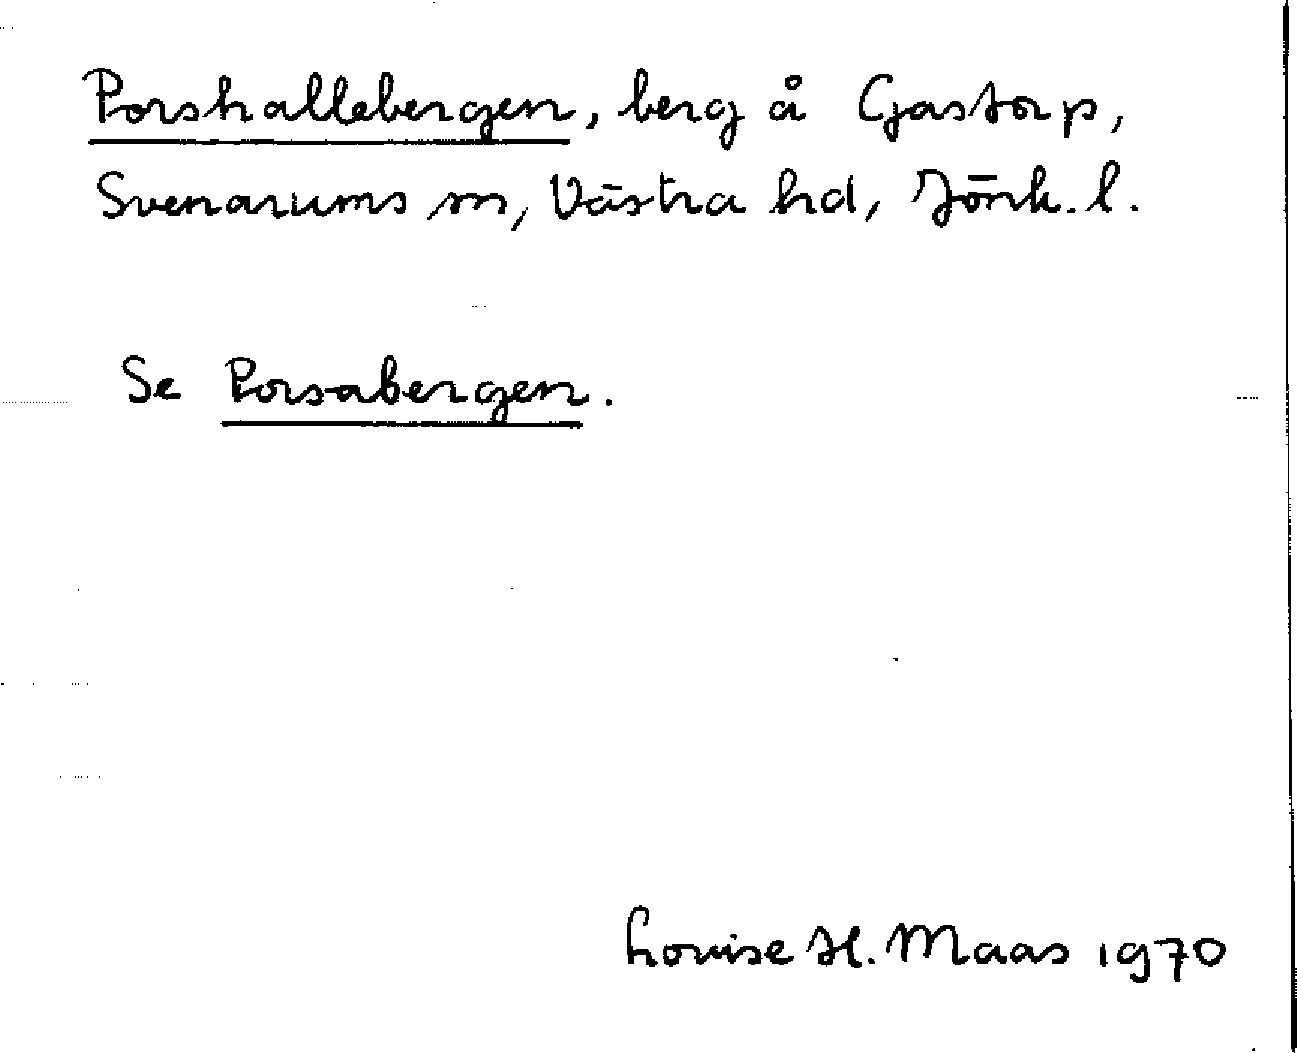 Porshallebergen, berg å Gastorp,
Svenarums sn, Västra hd, Jönk. l.
Se Porsabergen.
Louise H. Maas 1970